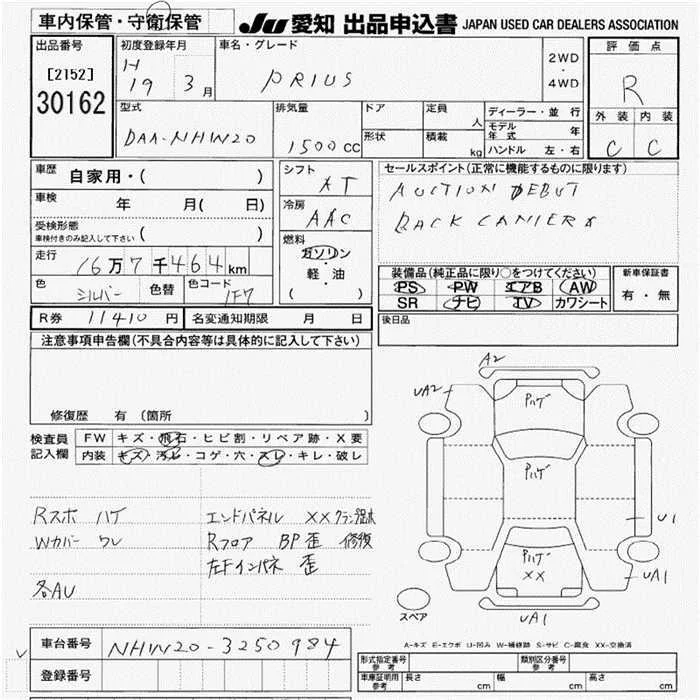 車内保管・守衛保管
JU 愛知 出品申込書 JAPAN USED CAR DEALERS ASSOCIATION
出品番号
[2152]
30162
初度登録年月
H
19 3月
車名・グレード
PRIUS
2WD
・
4WD
評価点
R
外装 内装
C C
型式
DAA-NHW20
排気量
1500cc
ドア
形状
定員
人
積載
kg
ディーラー・並行
モデル年式 年
ハンドル 左・右
車歴
自家用・( )
車検
年 月( 日)
受検形態
車検付きのみ記入して下さい ( )
走行
16万7千464km
色
シルバー
色替
色コード
1F7
シフト
AT
冷房
AAC
燃料
ガソリン
・
軽・油
( )
セールスポイント(正常に機能するものに限ります)
AUCTION DEBUT
BACK CAMERA
装備品(純正品に限り○をつけてください)
PS PW エアB AW
SR ナビ TV カワシート
新車保証書
有・無
R券 11410円
名変通知期限 月 日
後日品
注意事項申告欄(不具合内容等は具体的に記入して下さい)
修復歴 有(箇所 )
検査員
記入欄
FW キズ・飛石・ヒビ割・リペア跡・X要
内装 キズ・汚レ・コゲ・穴・スレ・キレ・破レ
Rスポ ハゲ
Wカバー ワレ
各AU
エンドパネル XX
Rフロア BP歪 修復
左Fインパネ 歪
A2
UA2
Pハゲ
Pハゲ
Pハゲ
XX
U1
UA1
UA1
スペア
A-キズ E-エクボ U-凹み W-補修跡 S-サビ C-腐食 XX-交換済
車台番号
NHW20-3250984
登録番号
形式指定番号
参考
類別区分番号
参考
車庫証明用
参考
長さ cm
幅 cm
高さ cm